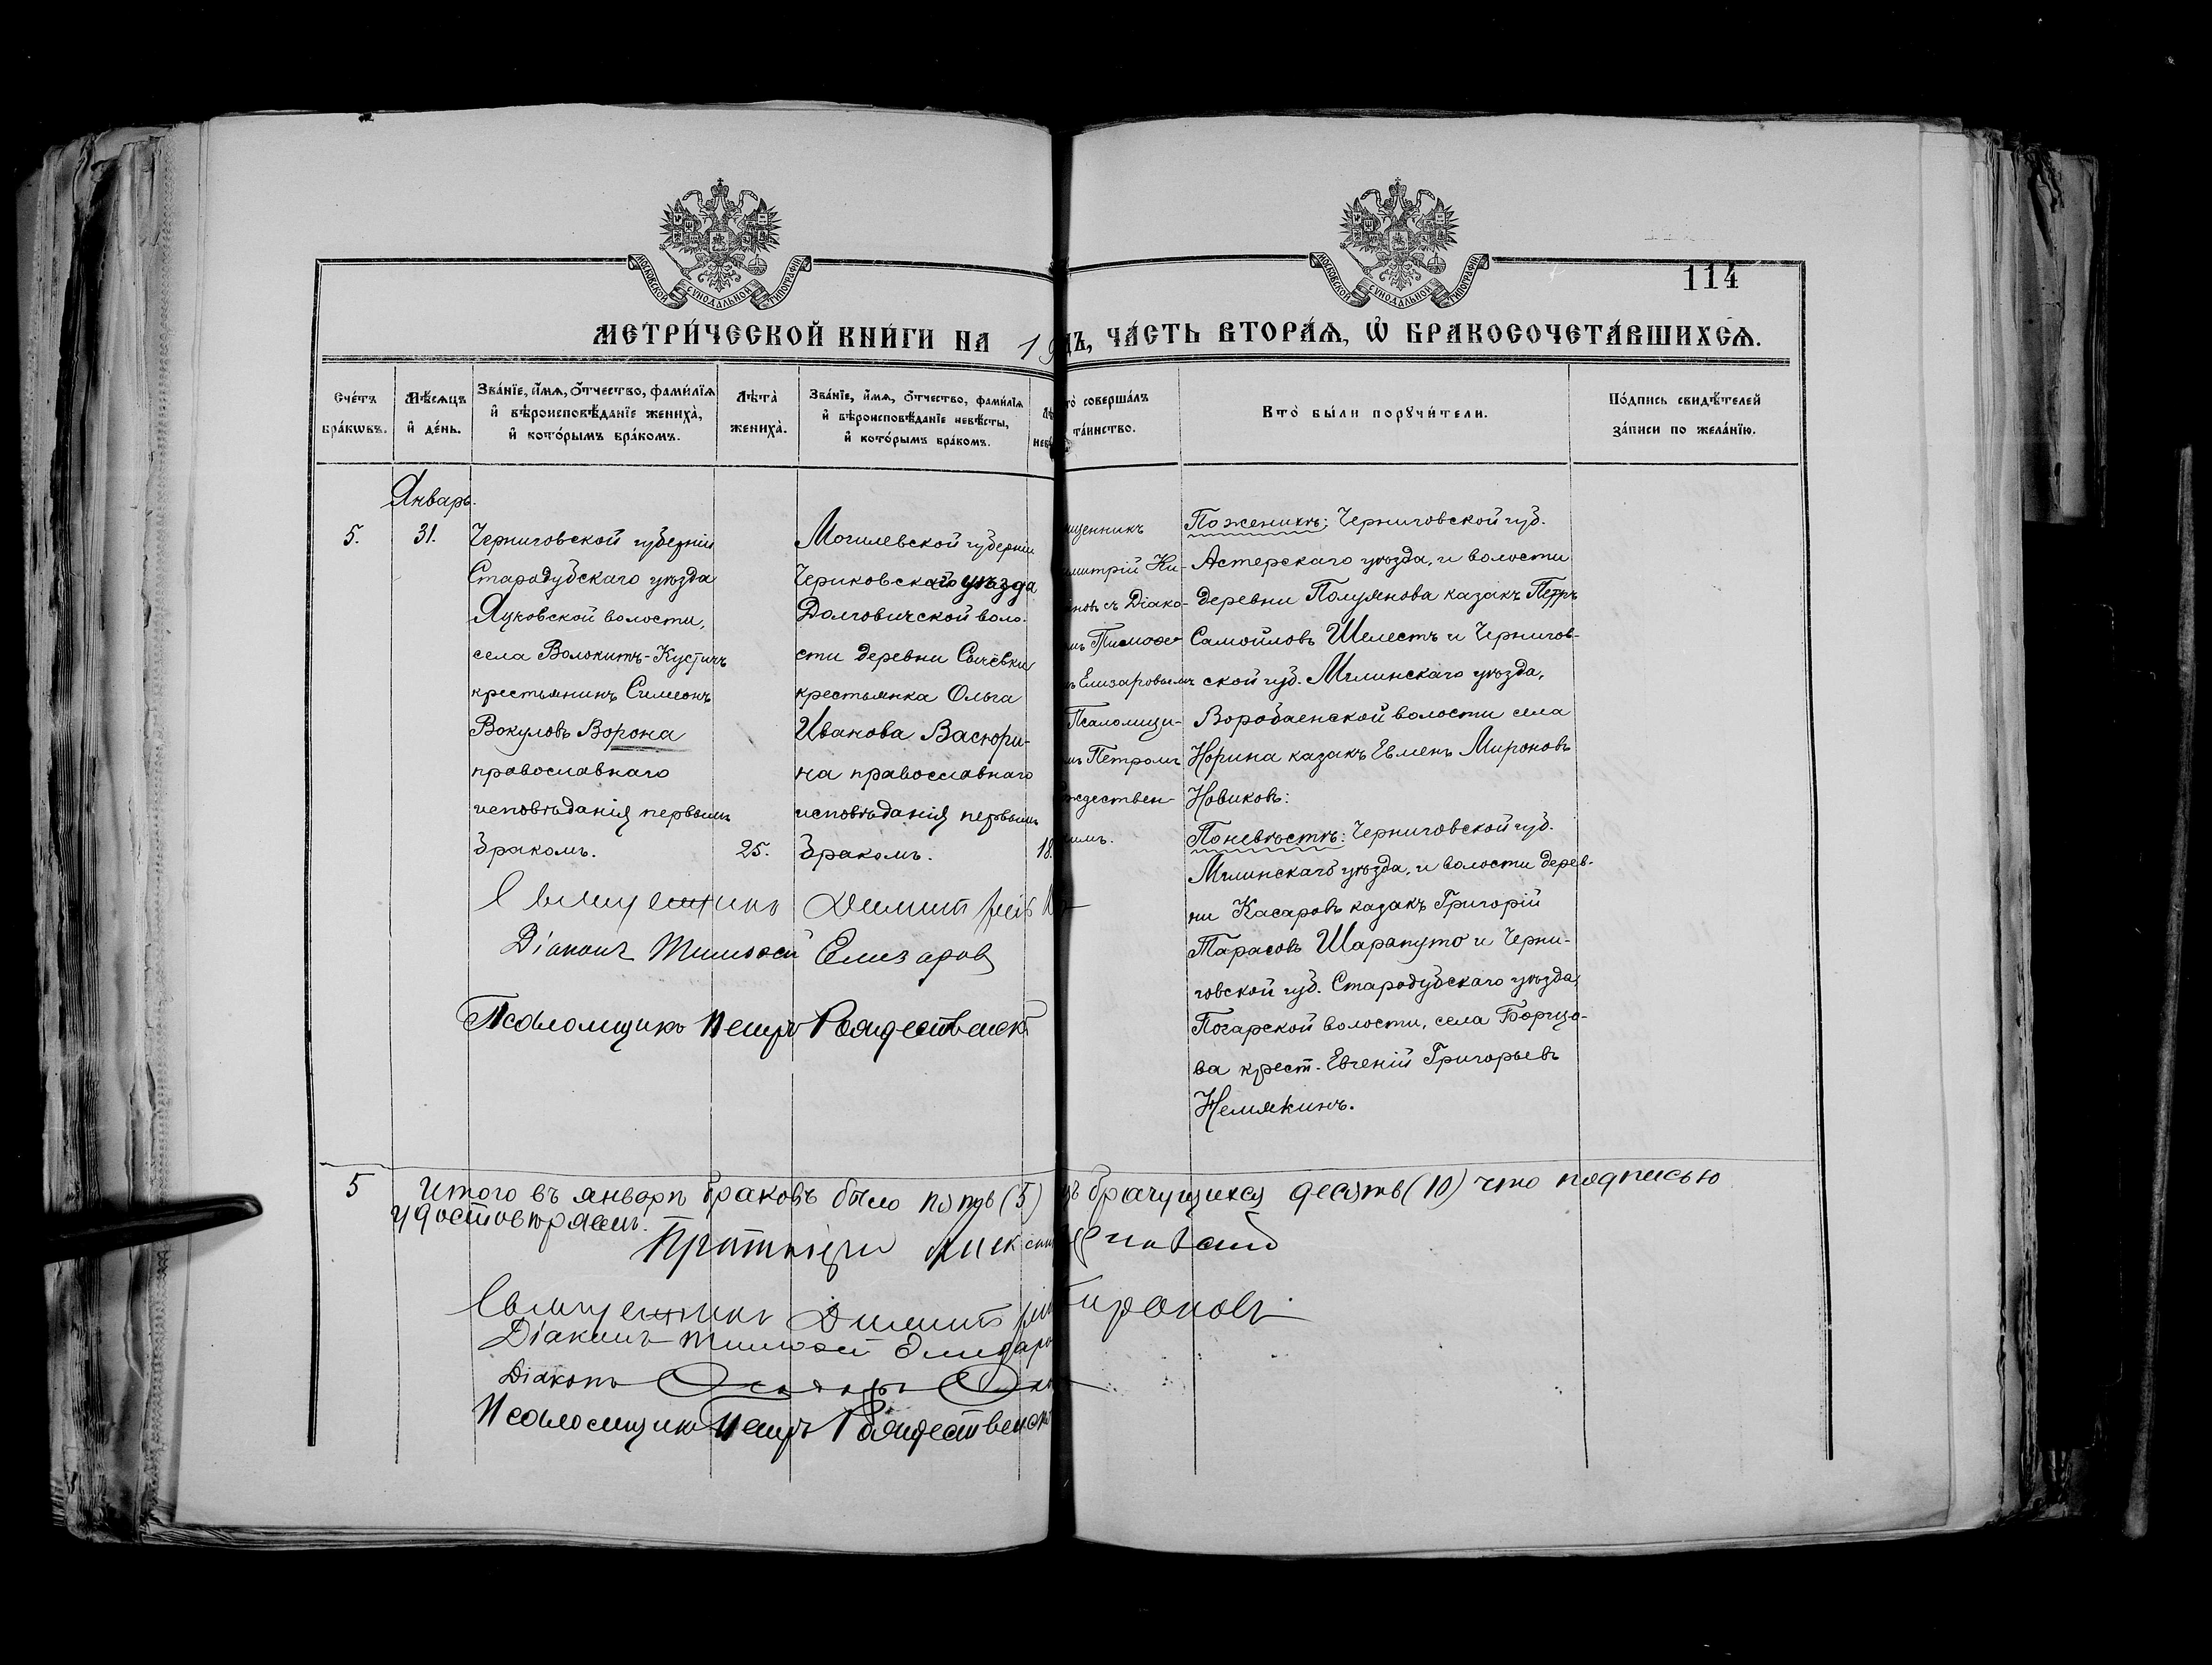 МОСКОВСКОЙ СУНОДАЛЬНОЙ ТИПОГРАФІИ
МОСКОВСКОЙ СУНОДАЛЬНОЙ ТИПОГРАФІИ
114
МЕТРИ́ЧЕСКОЙ КНИ́ГИ НА 19
ДЪ, ЧА́СТЬ ВТОРА́Ѧ, Ѡ҆ БРАКОСОЧЕТА́ВШИХСѦ.
Сче́тъ
бра́кѡвъ.
Мѣ́сѧцъ
и҆ де́нь.
Зва́нїе, и҆́мѧ, ѻ҆́тчество, фами́лїѧ
и҆ вѣроисповѣ́данїе жениха̀,
и҆ кото́рымъ бра́комъ.
Лѣ́та
жениха̀.
Зва́нїе, и҆́мѧ, ѻ҆́тчество, фами́лїѧ
и҆ вѣроисповѣ́данїе невѣ́сты,
и҆ кото́рымъ бра́комъ.
Лѣ
невѣ
то̀ соверша́лъ
та́инство.
Кто̀ бы́ли порꙋчи́тели.
По́дпись свидѣ́телей
за́писи по жела́нїю.
Январь.
5.
31.
Черниговской губерніи
Стародубскаго уѣзда
Яцковской волости,
села Волокитъ-Кустичъ
крестьянинъ Симеонъ
Вокуловъ Ворона
православнаго
исповѣданія первымъ
бракомъ.
25.
Могилевской губерніи
Чериковскаго уѣзда
Долговичской воло-
сти деревни Сычёвки
крестьянка Ольга
Иванова Васюри-
на православнаго
исповѣданія первымъ
бракомъ.
18.
щенникъ
имитрій Ки-
новъ съ Діако-
мъ Тимоѳе-
мъ Елизаровымъ
Псаломщи-
мъ Петромъ
ждествен-
кимъ.
По женихѣ; Черниговской губ.
Астерскаго уѣзда, и волости
деревни Полуянова казакъ Петръ
Самойловъ Шелестъ и Чернигов-
ской губ. Мглинскаго уѣзда,
Воробаенской волости села
Норина казакъ Евмень Мироновъ
Новиковъ:
По невѣстѣ: Черниговской губ.
Мглинскаго уѣзда, и волости дерев-
ни Касаровъ казакъ Григорій
Тарасовъ Шарапуто и Черни-
говской губ. Стародубскаго уѣзда,
Погарской волости, села Борщо-
ва крест. Евгеній Григорьевъ
Немякинъ.
Священникъ Димитрій К
Діаконъ Тимоѳей Елизаров
Псаломщикъ Петръ Рождественск
5
Итого въ январѣ браковъ было пять (5)
ъ брачущихся десять (10) что подписью
удостовѣряемъ.
Протоіерей Алек
Священникъ Димитрій
Кироновъ
Діаконъ Тимоѳей Елизаро
Діаконъ
Псаломщикъ Петръ Рождественск